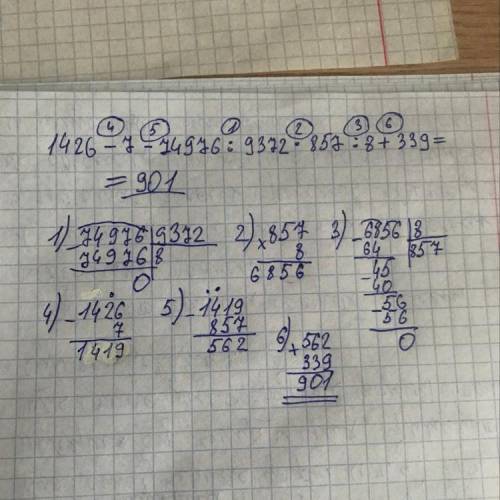 ④ ⑤ ① ② ③ ⑥
1426 - 7 - 74976 : 9372 · 857 : 8 + 339 =
= 901
1) 74976 | 9372
74976 | 8
0
2) × 857
8
6856
3) - 6856 | 8
64 | 857
- 45
40
- 56
56
0
4) - 1426
7
1419
5) - 1419
857
562
6) + 562
339
901